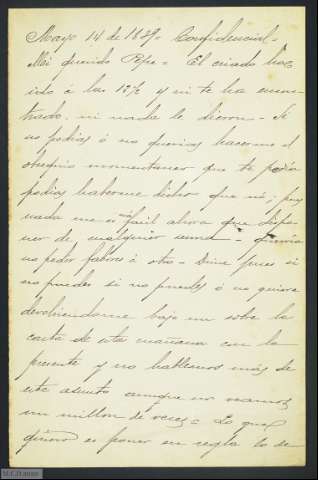 Mayo 14 de 1889 = Confidencial =
Mi querido Pepe = El criado ha
ido á las 12½ y ni te ha encon-
trado, ni nada le dieron = Si
no podías ó no querías hacerme el
obsequio momentáneo que te pedía
podías haberme dicho que no; pues
nada me es mas fácil ahora que dispo-
ner de cualquier suma = quería
no pedir favores á otro = Dime pues si
no puedes si no puedes ó no quieres
devolviendome bajo un sobre la
carta de esta mañana con la
presente y no hablemos más de
este asunto aunque nos veamos
un millon de veces = Lo que
quiero es poner en regla lo de